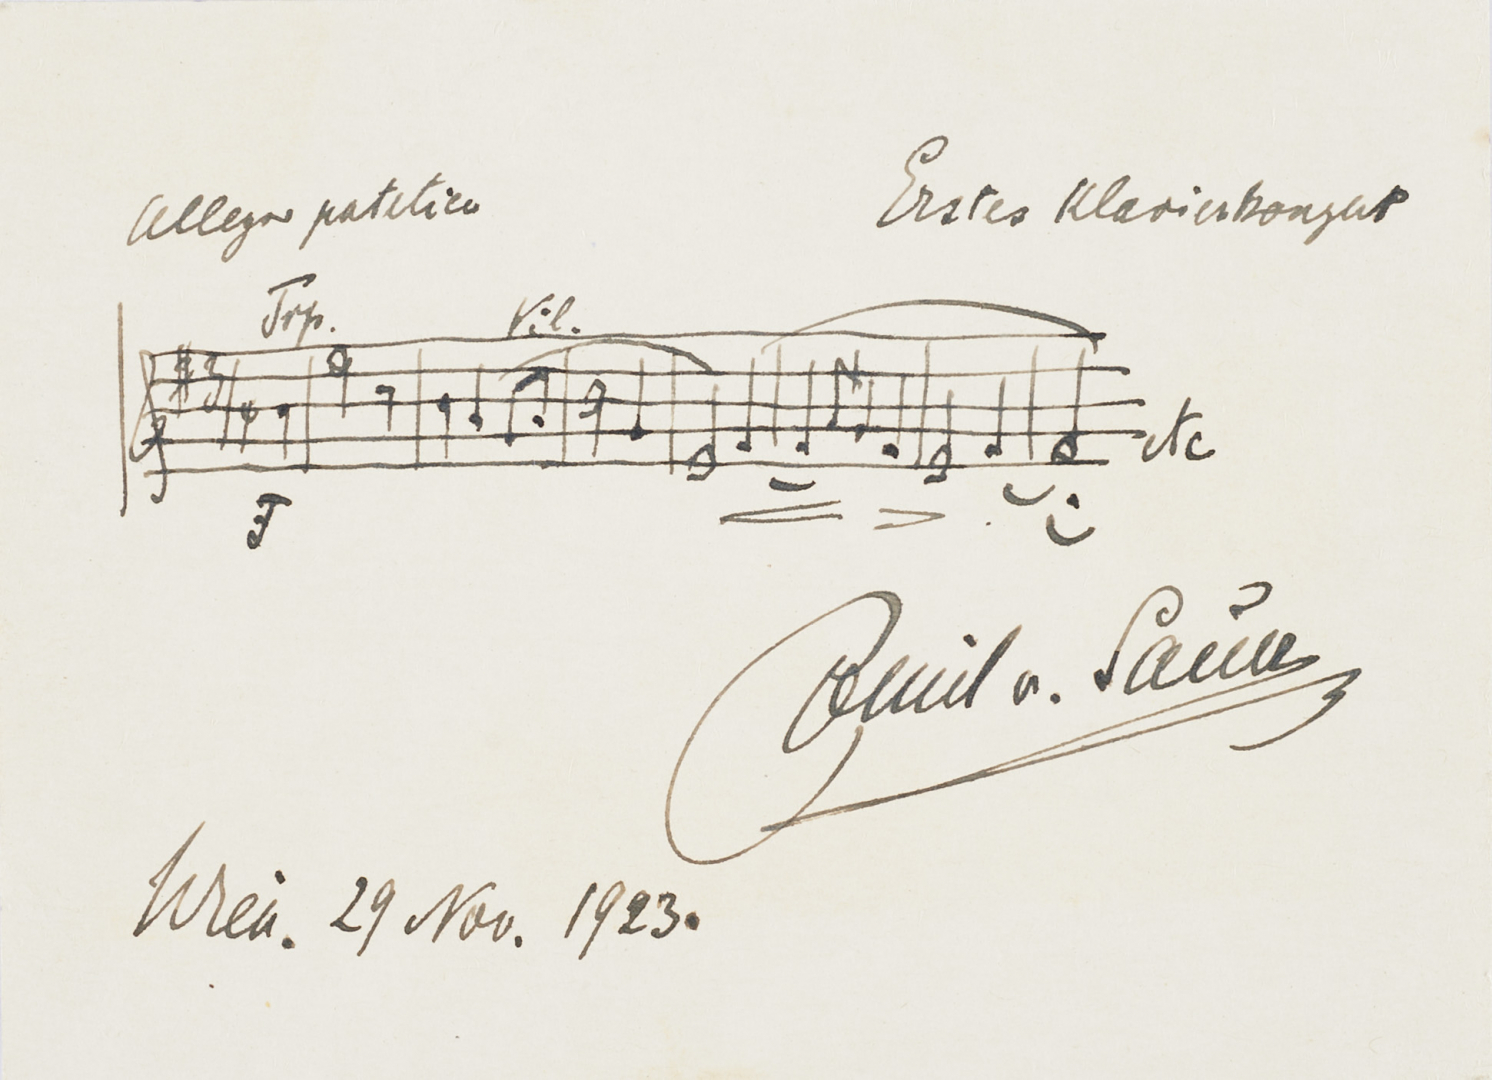 Allegro patetico
Erstes Klavierkonzert
Trp.
Viol.
3
etc
F
Emil v. Sauer
Wien. 29 Nov. 1923.